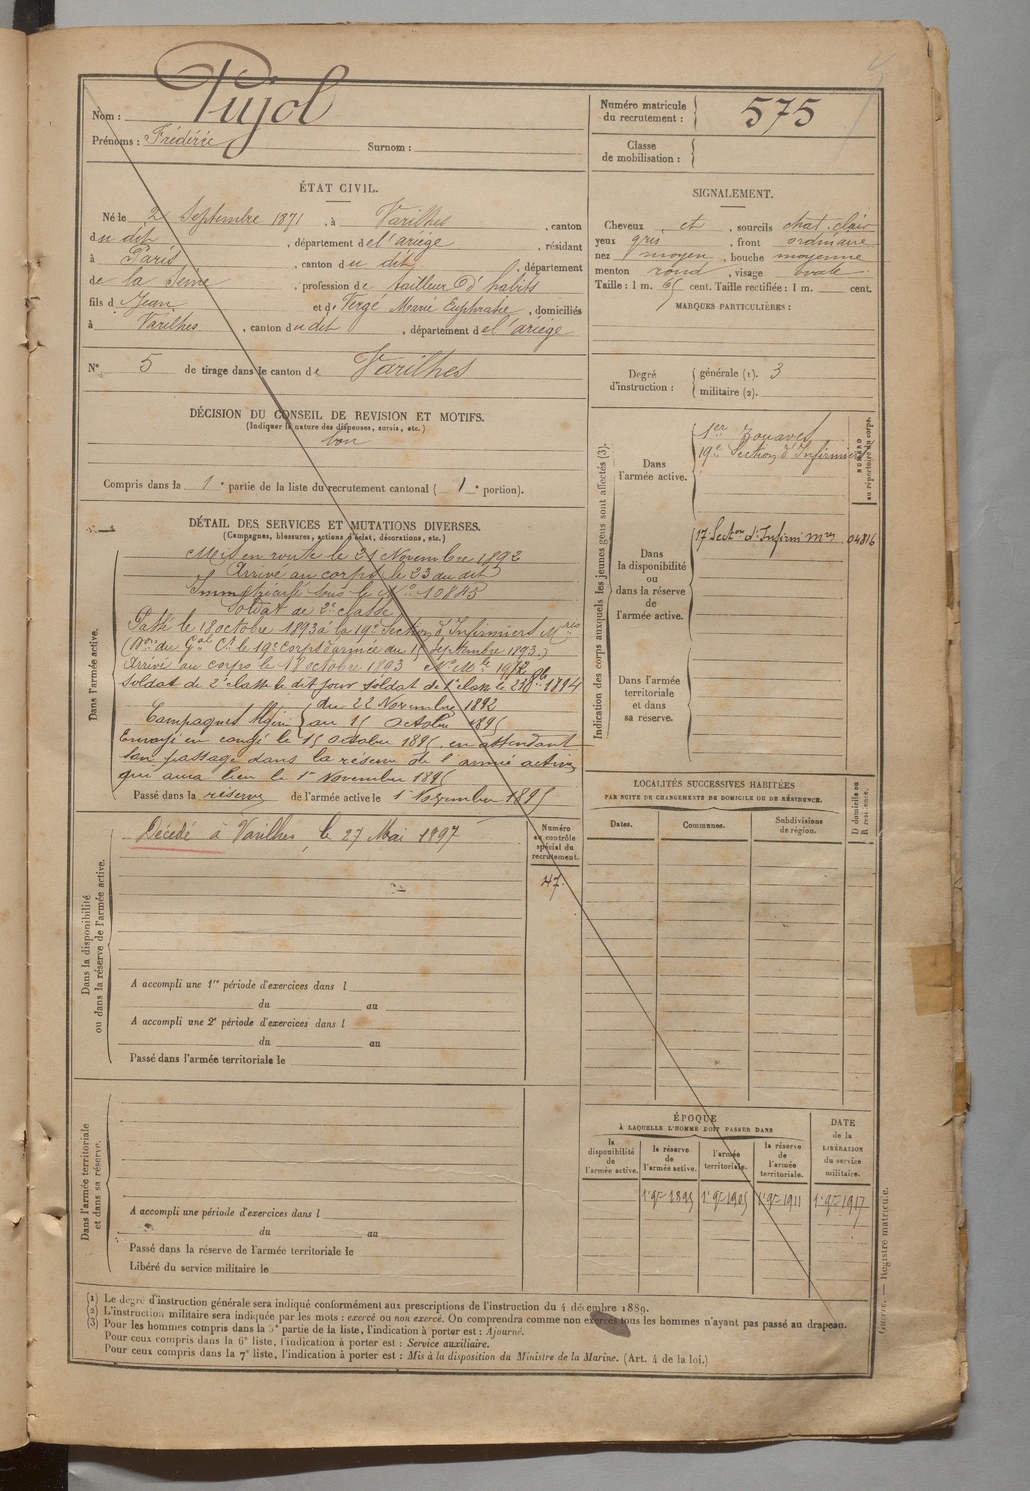 Nom : Pujol
Prénoms : Frédéric Surnom :
Numéro matricule
du recrutement : 575
Classe
de mobilisation :
ÉTAT CIVIL.
Né le 2 Septembre 1871, à Varilhes, canton
du dit, département de l'ariège, résidant
à Paris, canton du dit, département
de la Seine, profession de tailleur d'habits
fils d Jean et de Tergé Marie Euphrasie, domiciliés
à Varilhes, canton du dit, département de l'ariège
N° 5 de tirage dans le canton de Varilhes
SIGNALEMENT.
Cheveux et, sourcils chat. clair
yeux gris, front ordinaire
nez moyen, bouche moyenne
menton rond, visage ovale
Taille : 1 m. 65 cent. Taille rectifiée : 1 m. cent.
MARQUES PARTICULIÈRES :
Degré
d'instruction :
générale (1). 3
militaire (2).
DÉCISION DU CONSEIL DE REVISION ET MOTIFS.
(Indiquer la nature des dispenses, sursis, etc.)
bon
Compris dans la 1e partie de la liste du recrutement cantonal (1e portion).
DÉTAIL DES SERVICES ET MUTATIONS DIVERSES.
(Campagnes, blessures, actions d'éclat, décorations, etc.)
Dans l'armée active.
Mis en route le 21 Novembre 1892
Arrivé au corps le 23 du dit
Immatriculé sous le N° 10885
Soldat de 2e classe
Passé le 18 octobre 1893 à la 19e Section d'Infirmiers Mres
(Don du Gal Ct le 19e Corps d'armée du 15 Septembre 1893.)
Arrivé au corps le 18 octobre 1893 N° Mle 1972
Soldat de 2e classe le dit jour soldat de 1e classe le 1894
Campagnes du 22 Novembre 1892
au 15 Octobre 1895
Envoyé en congé le 15 octobre 1895 en attendant
son passage dans la réserve de l'armée active
qui aura lieu le 1er Novembre 1895
Passé dans la réserve de l'armée active le 1 Novembre 1895
Indication des corps auxquels les jeunes gens sont affectés (3).
NUMÉRO
au répertoire du corps.
Dans
l'armée active.
1er Zouaves
19e Section d'Infirmiers
Dans
la disponibilité
ou
dans la réserve
de
l'armée active.
17 Secton d'Infirm Mres 04816
Dans l'armée
territoriale
et dans
sa réserve.
Dans la disponibilité
ou dans la réserve de l'armée active.
Décédé à Varilhes, le 27 Mai 1897
Numéro
au contrôle
spécial du
recrutement.
47.
A accompli une 1re période d'exercices dans l
du au
A accompli une 2e période d'exercices dans l
du au
Passé dans l'armée territoriale le
LOCALITÉS SUCCESSIVES HABITÉES
PAR SUITE DE CHANGEMENTS DE DOMICILE OU DE RÉSIDENCE.
Dates.
Communes.
Subdivisions
de région.
D domicile ou
R résidence.
Dans l'armée territoriale
et dans sa réserve.
A accompli une période d'exercices dans l
du au
Passé dans la réserve de l'armée territoriale le
Libéré du service militaire le
ÉPOQUE
À LAQUELLE L'HOMME DOIT PASSER DANS
la
disponibilité
de
l'armée active.
la réserve
de
l'armée active.
l'armée
territoriale.
la réserve
de
l'armée
territoriale.
DATE
de la
LIBÉRATION
du service
militaire.
1er 9bre 1895 1er 9bre 1905 1er 9bre 1911 1er 9bre 1917
Guerre. — Registre matricule.
(1) Le degré d'instruction générale sera indiqué conformément aux prescriptions de l'instruction du 4 décembre 1889.
(2) L'instruction militaire sera indiquée par les mots : exercé ou non exercé. On comprendra comme non exercés tous les hommes n'ayant pas passé au drapeau.
(3) Pour les hommes compris dans la 5e partie de la liste, l'indication à porter est : Ajourné.
Pour ceux compris dans la 6e liste, l'indication à porter est : Service auxiliaire.
Pour ceux compris dans la 7e liste, l'indication à porter est : Mis à la disposition du Ministre de la Marine. (Art. 4 de la loi.)